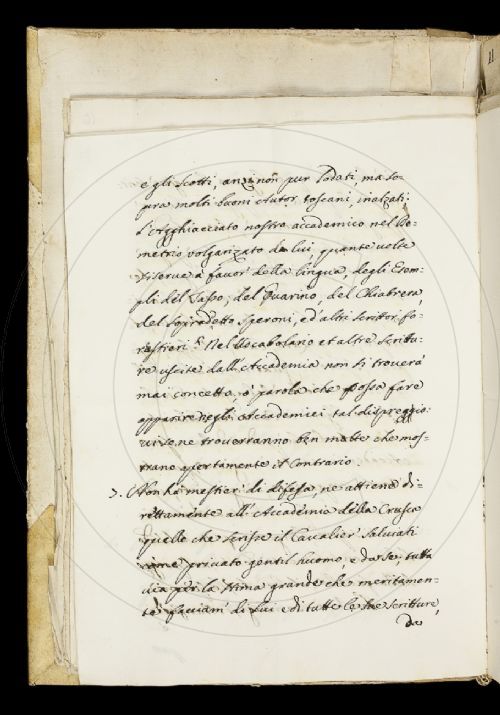 e gli Scotti, anzi non pur lodati, ma so-
pra molti buoni Autor toscani, inalzati.
l'Agghiacciato nostro accademico nel De-
metrio volgarizato da lui, quante volte
si serve a favor della lingua, degli Esem-
pli del Tasso, del Guarino, del Chiabrera,
del sopradetto Speroni, ed altri scrittor fo-
restieri? Nel Vocabolario et altre scrittu-
re uscite dall'Accademia non si troverà
mai concetto, ò parola che possa fare
apparire negli Accademici tal dispreggio:
ve ne troverranno ben molte che mos-
trano apertamente il contrario.
7. Non ha mestier di difesa, ne attiene di-
rettamente all'Accademia della Crusca
quello che scrisse il Cavalier Salviati
come privato gentil huomo, e da se; tutta
via per la stima grande che meritamen-
te facciam di lui e di tutte le sue scritture,
da